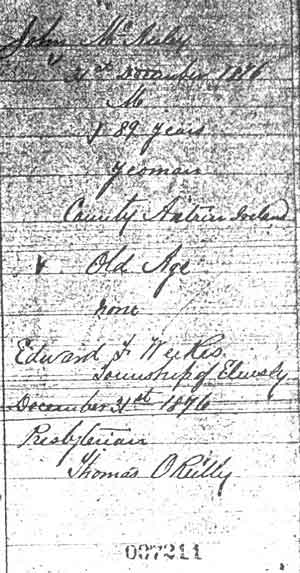 John McKelvy
21st November 1876
M
89 years
Yeoman
County Antrim Ireland
Old Age
none
Edward F Weekes
Township of Elmsly
December 21st 1876
Presbyterian
Thomas O'Reilly
007211